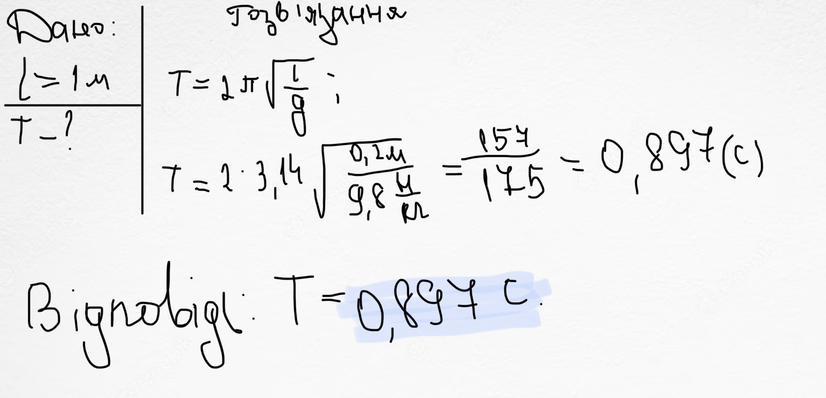 Дано:
l = 1м
T - ?
Розв'язання
T = 2π√(l/g);
T = 2·3,14 √(0,2м / 9,8 м/кг) = 157/175 = 0,897 (с)
Відповідь: T = 0,897 с.